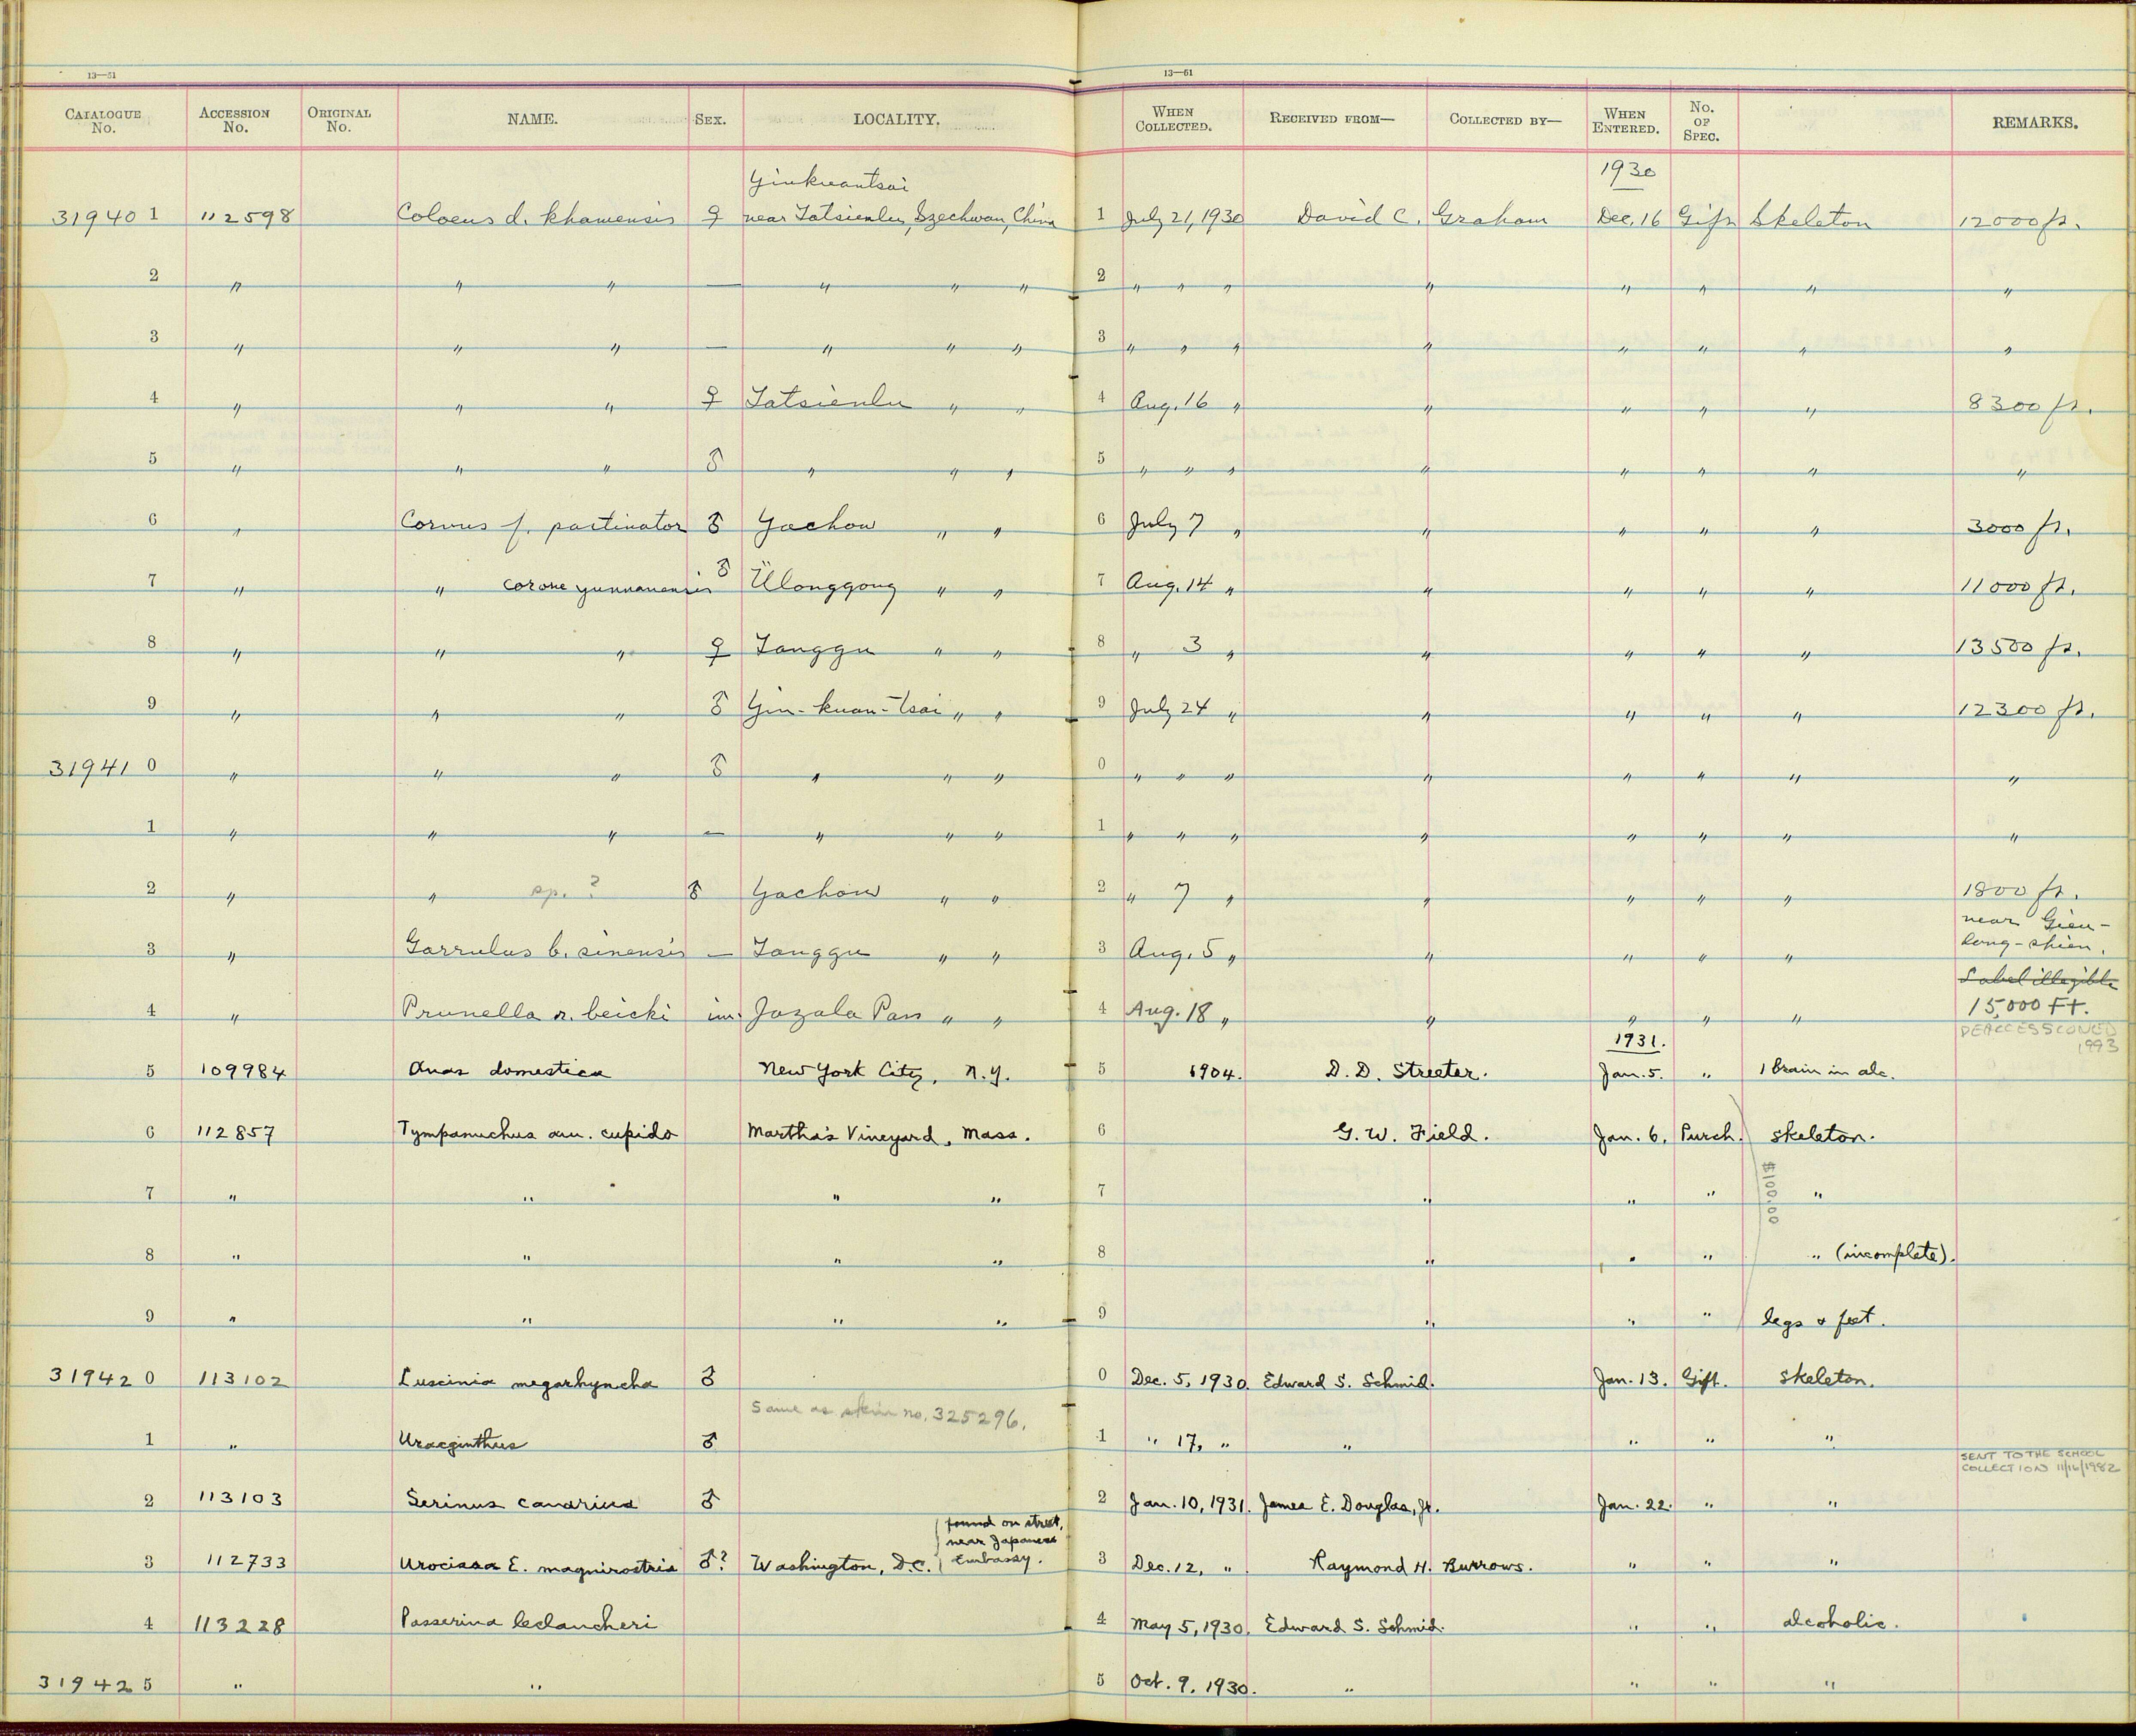 13—51 13—51
CATALOGUE No. ACCESSION No. ORIGINAL No. NAME. SEX. LOCALITY. WHEN COLLECTED. RECEIVED FROM— COLLECTED BY— WHEN ENTERED. No. OF SPEC. REMARKS.
1930
Yinkuantsai
31940 1 112598 Coloeus d. khamensis ♀ near Tatsienlu, Szechwan, China 1 July 21, 1930 David C. Graham Dec. 16 Gift Skeleton 12000 ft.
2 " " " — " " " 2 " " " " " " " "
3 " " " — " " " 3 " " " " " " " "
4 " " " ♀ Tatsienlu " " 4 Aug. 16 " " " " " 8300 ft.
5 " " " ♂ " " " 5 " " " " " " " "
6 " Corvus f. pastinator ♂ Yachow " " 6 July 7 " " " " " 3000 ft.
7 " " corone yunnanensis ♂ Ülonggong " " 7 Aug. 14 " " " " " 11000 ft.
8 " " " ♀ Tanggu " " 8 " 3 " " " " " 13500 ft.
9 " " " ♂ Yin-kuan-tsai " " 9 July 24 " " " " " 12300 ft.
31941 0 " " " ♂ " " " 0 " " " " " " " "
1 " " " — " " " 1 " " " " " " " "
2 " " sp. ? ♂ Yachow " " 2 " 7 " " " " " 1800 ft.
near Gien-
long-shien.
3 " Garrulus b. sinensis — Tanggu " " 3 Aug. 5 " " " " "
Label illegible
4 " Prunella r. beicki im. Jazala Pass " " 4 Aug. 18 " " " " " 15,000 FT.
DEACCESSIONED
1993
1931.
5 109984 Anas domestica New York City, N.Y. 5 1904. D. D. Streeter. Jan. 5. " 1 brain in alc.
6 112857 Tympanuchus am. cupido Martha's Vineyard, Mass. 6 G. W. Field. Jan. 6. Purch. skeleton.
$100.00
7 " " " " 7 " " " "
8 " " " " 8 " " " " (incomplete).
9 " " " " 9 " " " legs & feet.
31942 0 113102 Luscinia megarhyncha ♂ 0 Dec. 5, 1930. Edward S. Schmid. Jan. 13. Gift. skeleton.
Same as skin no. 325296.
1 " Uraeginthus ♂ 1 " 17, " " " " "
SENT TO THE SCHOOL
COLLECTION 11/16/1982
2 113103 Serinus canarius ♂ 2 Jan. 10, 1931. James E. Douglas, Jr. Jan. 22. " "
found on street,
near Japanese
Embassy.
3 112733 Urocissa E. magnirostris ♂? Washington, D.C. 3 Dec. 12, " Raymond H. Burrows. " " "
4 113228 Passerina leclancheri 4 May 5, 1930. Edward S. Schmid. " " alcoholic.
31942 5 " " 5 Oct. 9, 1930. " " " "